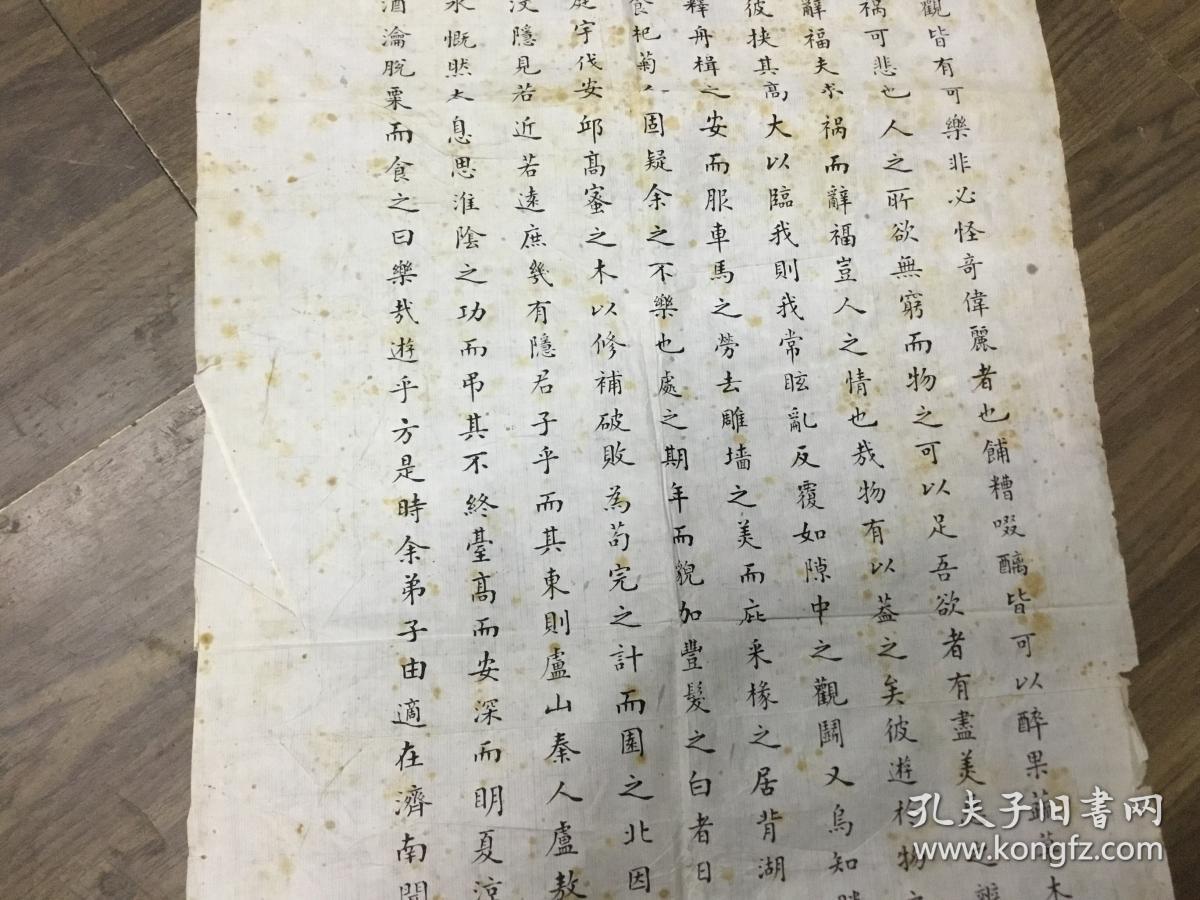 觀皆有可樂非必怪奇偉麗者也餔糟啜醨皆可以醉果蔬草木
禍可悲也人之所欲無窮而物之可以足吾欲者有盡美惡之辨
辭福夫求禍而辭福豈人之情也哉物有以葢之矣彼遊於物之
彼挾其高大以臨我則我常眩亂反覆如隙中之觀鬭又烏知勝
釋舟楫之安而服車馬之勞去雕墻之美而庇采椽之居背湖
食杞菊人固疑余之不樂也處之期年而貌加豐髮之白者日
庭宇伐安邱高蜜之木以修補破敗為苟完之計而園之北因
没隱見若近若遠庶幾有隱君子乎而其東則盧山秦人盧敖
水慨然太息思淮陰之功而吊其不終臺高而安深而明夏涼
酒瀹脫粟而食之曰樂哉遊乎方是時余弟子由適在濟南聞
孔夫子旧书网
www.kongfz.com